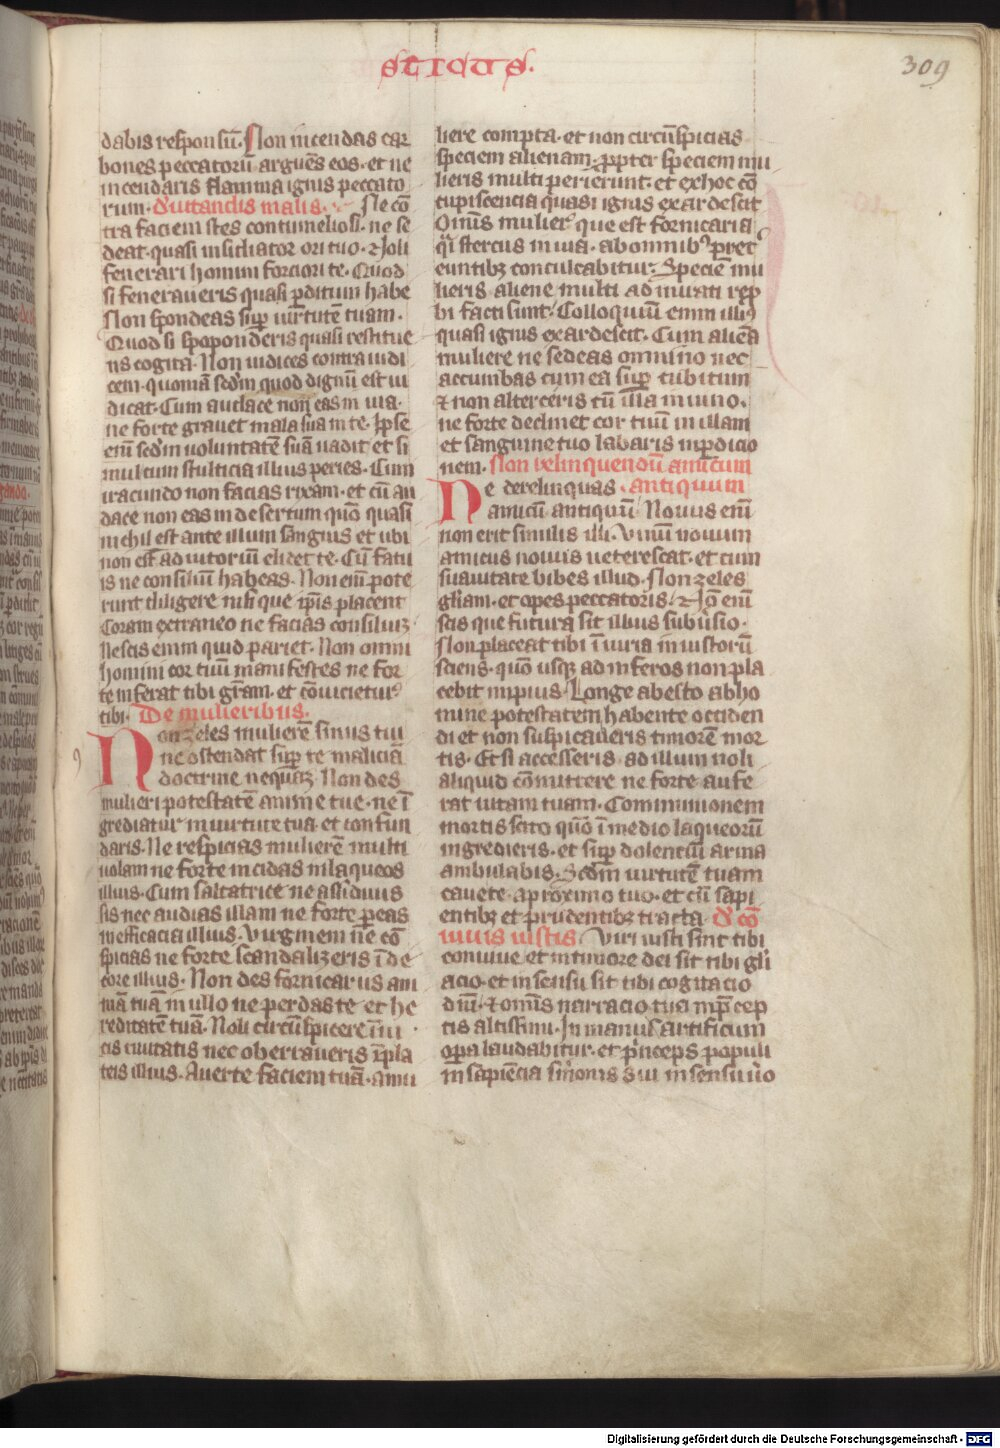 sticus.
309
dabis responsū. Non incendas car
bones peccatorū arguēs eos. et ne
incendaris flamma ignis peccato
rum. d' vitandis malis. Ne cō
tra faciem stes contumeliosi. ne se
deat quasi insidiator ori tuo. Noli
fenerari homini forciori te. Quod
si feneraueris quasi ꝑditum habe
Non spondeas suꝑ uirtutē tuam.
Quod si spoponderis quasi restitue
ns cogita. Non iudices contra iudi
cem. quoniā scdm quod dignū est iu
dicat. Cum audace non eas in uia.
ne forte grauet mala sua in te. Ipse
enī scdm voluntatē suā uadit et si
mul cum stulticia illius peries. Cum
iracundo non facias rixam. et cū au
dace non eas in desertum quō quasi
nichil est ante illum sanguis et ubi
non est adiutoriū elidet te. Cū fatu
is ne consiliū habeas. Non enī pote
runt diligere nisi que ipīs placent
Coram extraneo ne facias consiliuꝫ
Nescis enim quid pariet. Non omni
homini cor tuū manifestes ne for
te inferat tibi grām. et cōuicietur
tibi. De mulieribus.
Non zeles mulierē sinus tui
ne ostendat suꝑ te maliciā
doctrine nequaꝫ Non des
mulieri potestatē anime tue. ne ī
grediatur in uirtute tua et confun
daris. Ne respicias mulierē multi
uolam ne forte incidas in laqueos
illius. Cum saltatrice ne assiduus
sis nec audias illam ne forte ꝑeas
in efficacia illius. Virginem ne cō
spicias ne forte scandalizeris ī de
core illius. Non des fornicariis ani
mā tuā in ullo ne perdas te et he
reditatē tuā. Noli circūspicere ī ui
cis ciuitatis nec oberraueris ī pla
teis illius. Auerte faciem tuā. a mu
liere compta. et non circūspicias
speciem alienam. ꝓpter speciem mu
lieris multi perierunt. et ex hoc cō
cupiscencia quasi ignis exardescit
Omis mulier que est fornicaria
q̄i stercus in uia. ab omnibꝰ pret
euntibꝫ conculcabitur. Speciē mu
lieris aliene multi admirati rep
bi facti sunt. Colloquiū enim illiꝰ
quasi ignis exardescit. Cum aliēa
muliere ne sedeas omnino nec
accumbas cum ea suꝑ cubitum
et non alterceris cū illa in uino.
ne forte declinet cor tuū in illam
et sanguine tuo labaris in ꝑdicio
nem. Non relinquendū amicum
Ne derelinquas antiquum
amicū antiquū. Nouus enī
non erit similis illi. Vinū nouum
amicus nouus ueterescat. et cum
suauitate bibes illud. Non zeles
gl̄iam. et opes peccatoris. Nō enī
scis que futura sit illius subūsio.
Non placeat tibi ī iuria iniustorū
sciens. quō usqꝫ ad inferos non pla
cebit impius. Longe abesto ab ho
mine potestatem habente occiden
di et non suspicaueris timorē mor
tis. Et si accesseris ad illum noli
aliquid cōmittere ne forte aufe
rat uitam tuam. Communionem
mortis scito quō ī medio laqueorū
ingredieris. et suꝑ dolentiū arma
ambulabis. Scdm uirtutē tuam
cauete a ꝓximo tuo. et cū sapi
entibꝫ et prudentibꝫ tracta. d' cō
uiuis iustis. Viri iusti sint tibi
conuiue. et in timore dei sit tibi gl̄i
acio. et in sensu sit tibi cogitacio
dei. et omīs narracio tua in p̄cep
tis altissimi. In manu artificum
oꝑa laudabitur. et p̄nceps populi
in sapiēcia sermonis sui in sensu uo
Digitalisierung gefördert durch die Deutsche Forschungsgemeinschaft - DFG